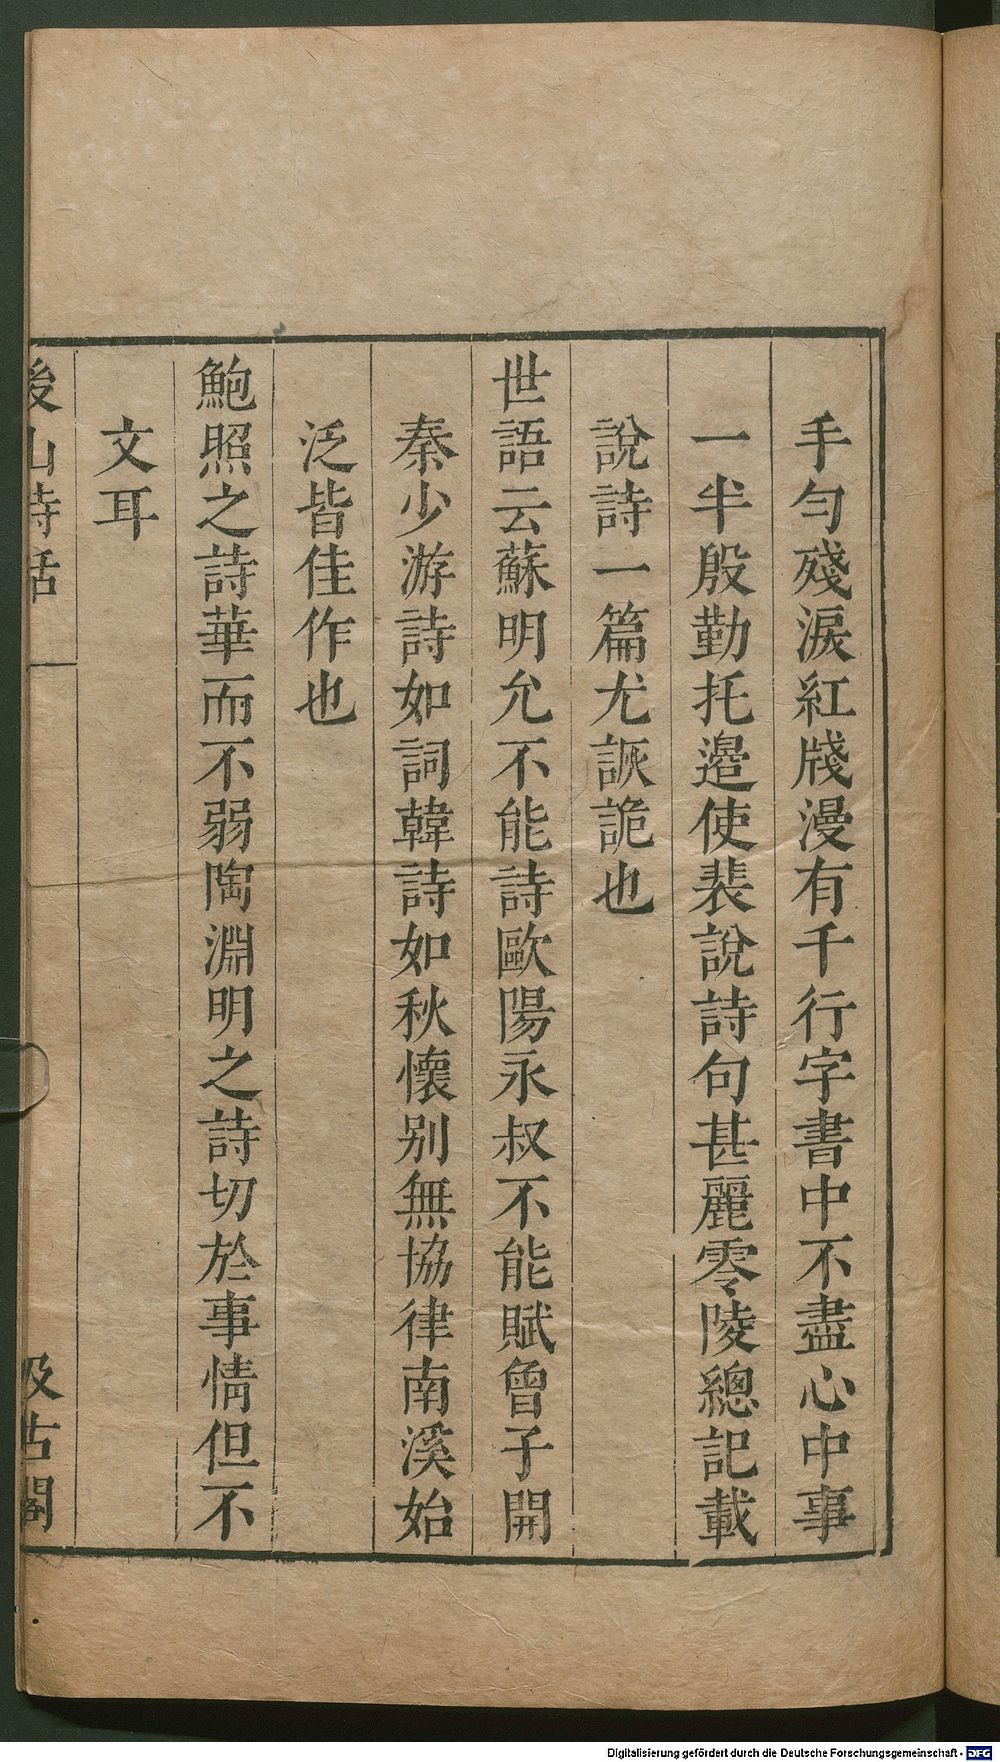 手勻殘淚紅牋漫有千行字書中不盡心中事
一半殷勤托邉使裴說詩句甚麗零陵總記載
說詩一篇尤詼詭也
世語云蘇明允不能詩歐陽永叔不能賦曾子開
秦少游詩如詞韓詩如秋懷别無協律南溪始
泛皆佳作也
鮑照之詩華而不弱陶淵明之詩切於事情但不
文耳
後山詩話 一 汲古閣
Digitalisierung gefördert durch die Deutsche Forschungsgemeinschaft - DFG